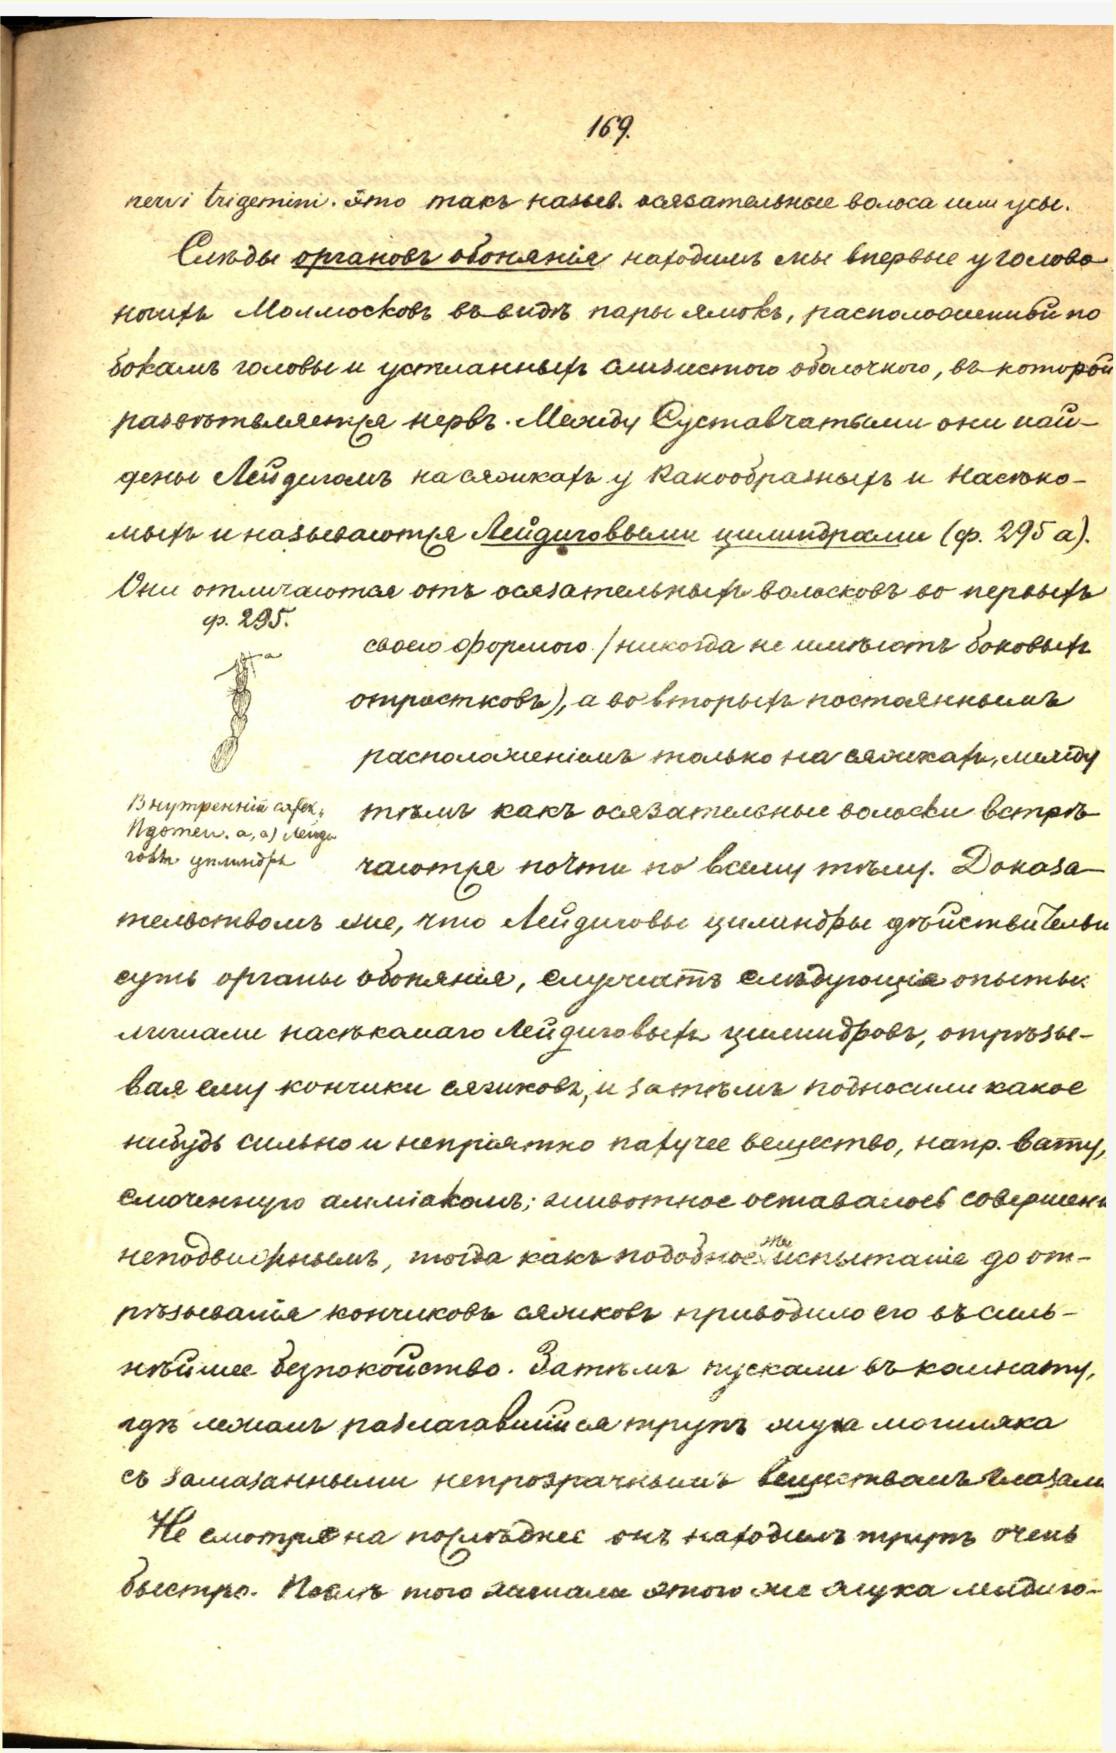 169.
nervi trigemini. Это такъ назыв. осязательные волоса или усы.
Слѣды органовъ обонянія находимъ мы впервые у голово
ногихъ Моллюсковъ въ видѣ пары ямокъ, расположенной по
бокамъ головы и устланныхъ слизистого оболочкого, въ которой
развѣтвляется нервъ. Между Суставчатыми они най-
дены Лейдигомъ на сяжкахъ у Ракообразныхъ и Насѣко-
мыхъ и называются Лейдиговыми цилиндрами (ф. 295 а).
Они отличаются отъ осязательныхъ волосковъ во первыхъ
ф. 295.
а
своею формою (никогда не имѣютъ боковыхъ
отростковъ), а во вторыхъ постояннымъ
расположеніемъ только на сяжкахъ, между
Внутренній сяжек.
Идотеи. а, а) Лейди
говы цилиндры
тѣмъ какъ осязательные волоски встрѣ-
чаются почти по всему тѣлу. Доказа-
тельствомъ же, что Лейдиговы цилиндры дѣйствительн
суть органы обонянія, служатъ слѣдующіе опыты:
лишали насѣкомаго Лейдиговыхъ цилиндровъ, отрѣзы-
вая ему кончики сяжковъ, и затѣмъ подносили какое
нибудь сильно и непріятно пахучее вещество, напр. вату,
смоченную амміакомъ; животное оставалось совершенн
неподвижнымъ, тогда какъ подобное же испытаніе до от-
рѣзыванія кончиковъ сяжковъ приводило его въ силь-
нѣйшее безпокойство. Затѣмъ пускали въ комнату,
гдѣ лежалъ разлагавшійся трупъ жука могиляка
съ замазанными непрозрачнымъ веществомъ глазами
Не смотря на послѣднее онъ находилъ трупъ очень
быстро. Послѣ того лишали этого же жука лейдиго-